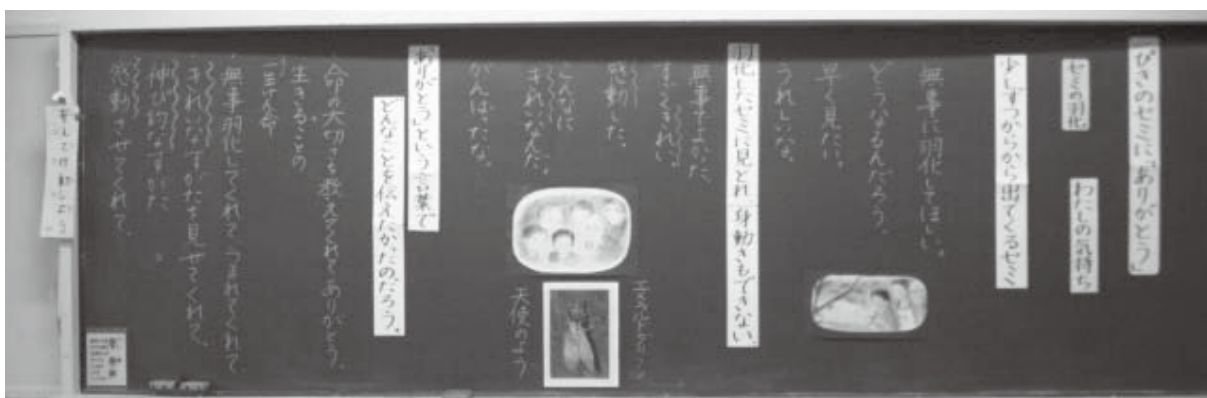 一ぴきのセミに「ありがとう」
セミの羽化
わたしの気持ち
少しずつからから出てくるセミ
無事に羽化してほしい。
どうなるんだろう。
早く見たい。
うれしいな。
羽化したセミに見とれ 身動きもできない。
無事でよかった。
すごくきれい。
感動した。
こんなに
きれいなんだ。
がんばったな。
エメルドグリーン
天使のよう
「ありがとう」という言葉で
どんなことを伝えたかったのだろう。
命の大切さを教えてくれてありがとう。
生きることの
一生けん命
・無事羽化してくれて、うまれてくれて
・きれいなすがたを見せてくれて、
神ぴ的なすがた
感動させてくれて、